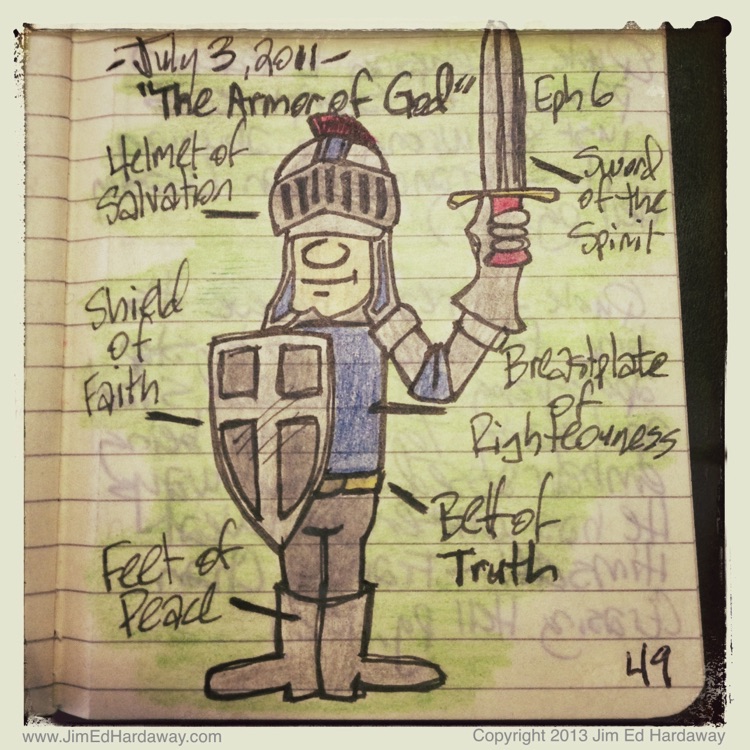 -July 3, 2011-
"The Armor of God"
Eph 6
Helmet of
Salvation
Sword
of the
Spirit
Shield
of
Faith
Breastplate
of
Righteouness
Belt of
Truth
Feet of
Peace
49
www.JimEdHardaway.com
Copyright 2013 Jim Ed Hardaway